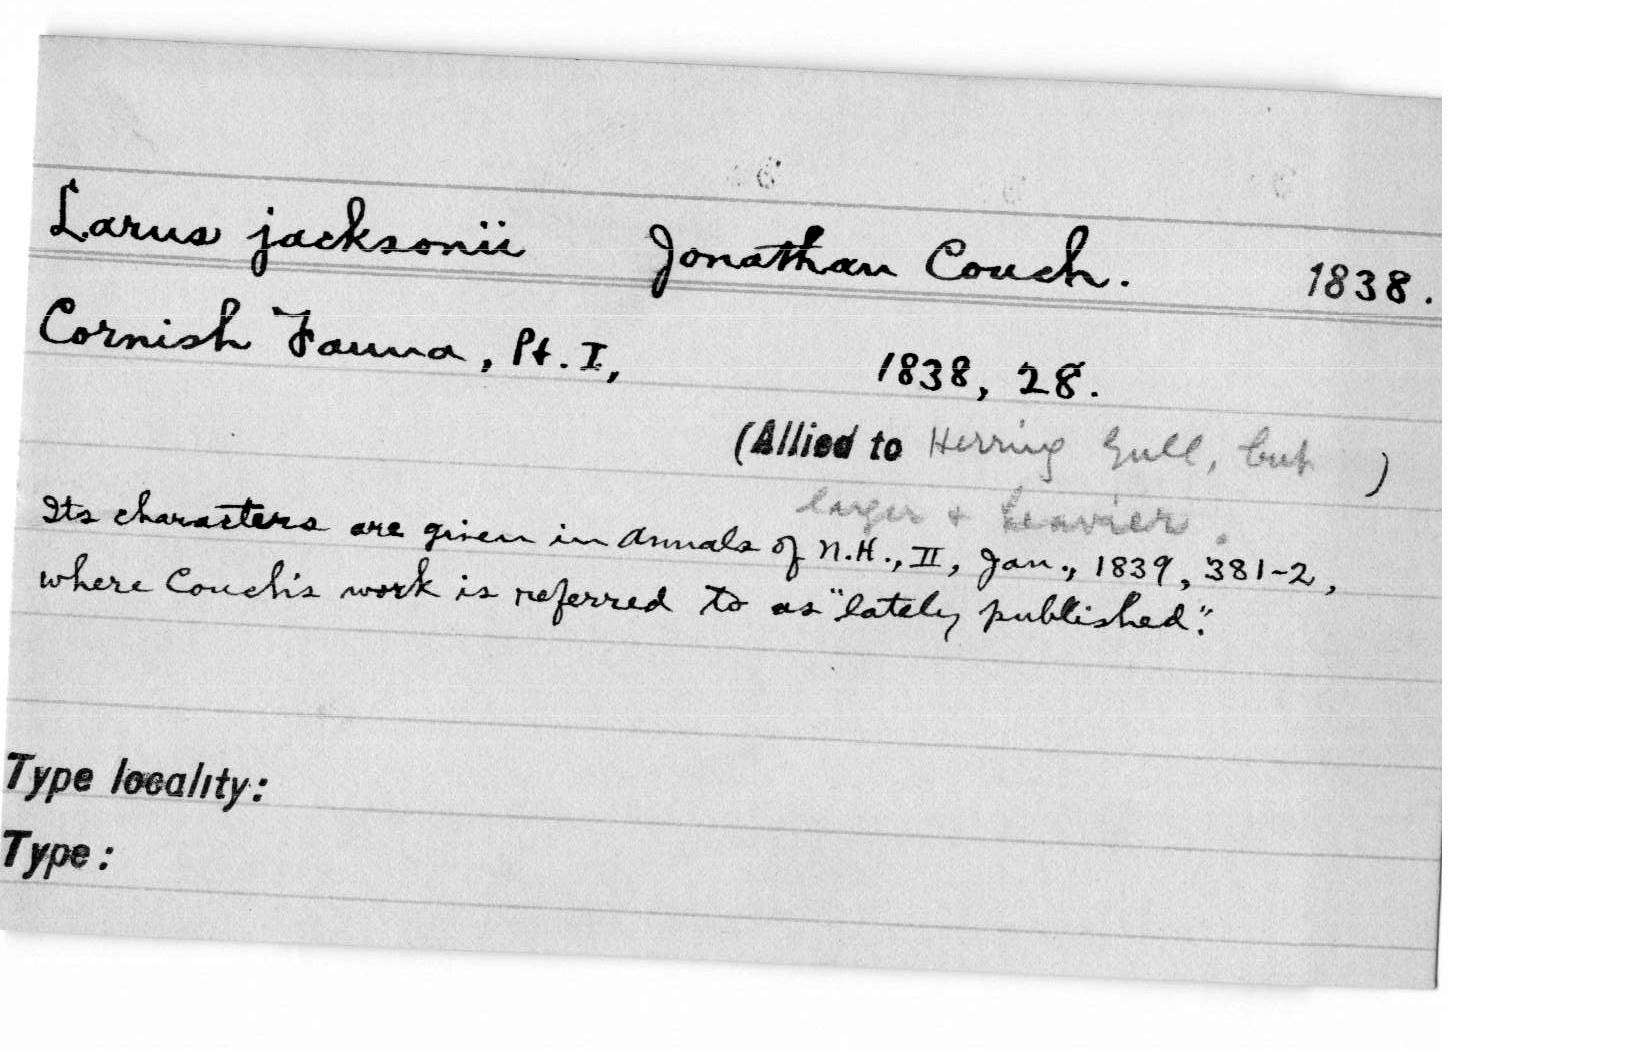 Larus jacksonii Jonathan Couch. 1838.
Cornish Fauna, Pt. I, 1838, 28.
(Allied to Herring Gull, but )
larger + heavier.
Its characters are given in Annals of N.H., II, Jan., 1839, 381-2,
where Couch's work is referred to as "lately published".
Type locality:
Type: